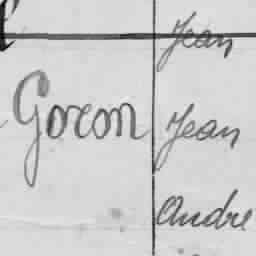 Jean
Goron Jean
Andre